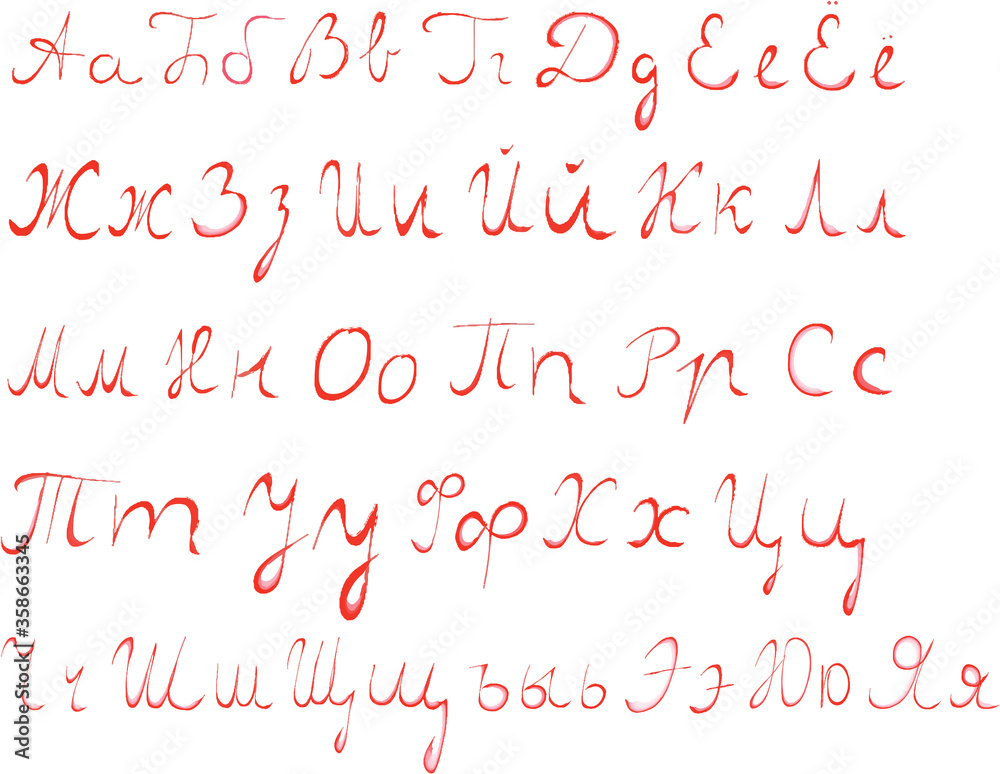 Аа Бб Вв Гг Дд Ее Ёё
Жж Зз Ии Йй Кк Лл
Мм Нн Оо Пп Рр Сс
Тт Уу Фф Хх Цц
Чч Шш Щщ ъ ы ь Ээ Юю Яя
Adobe Stock | #358663345